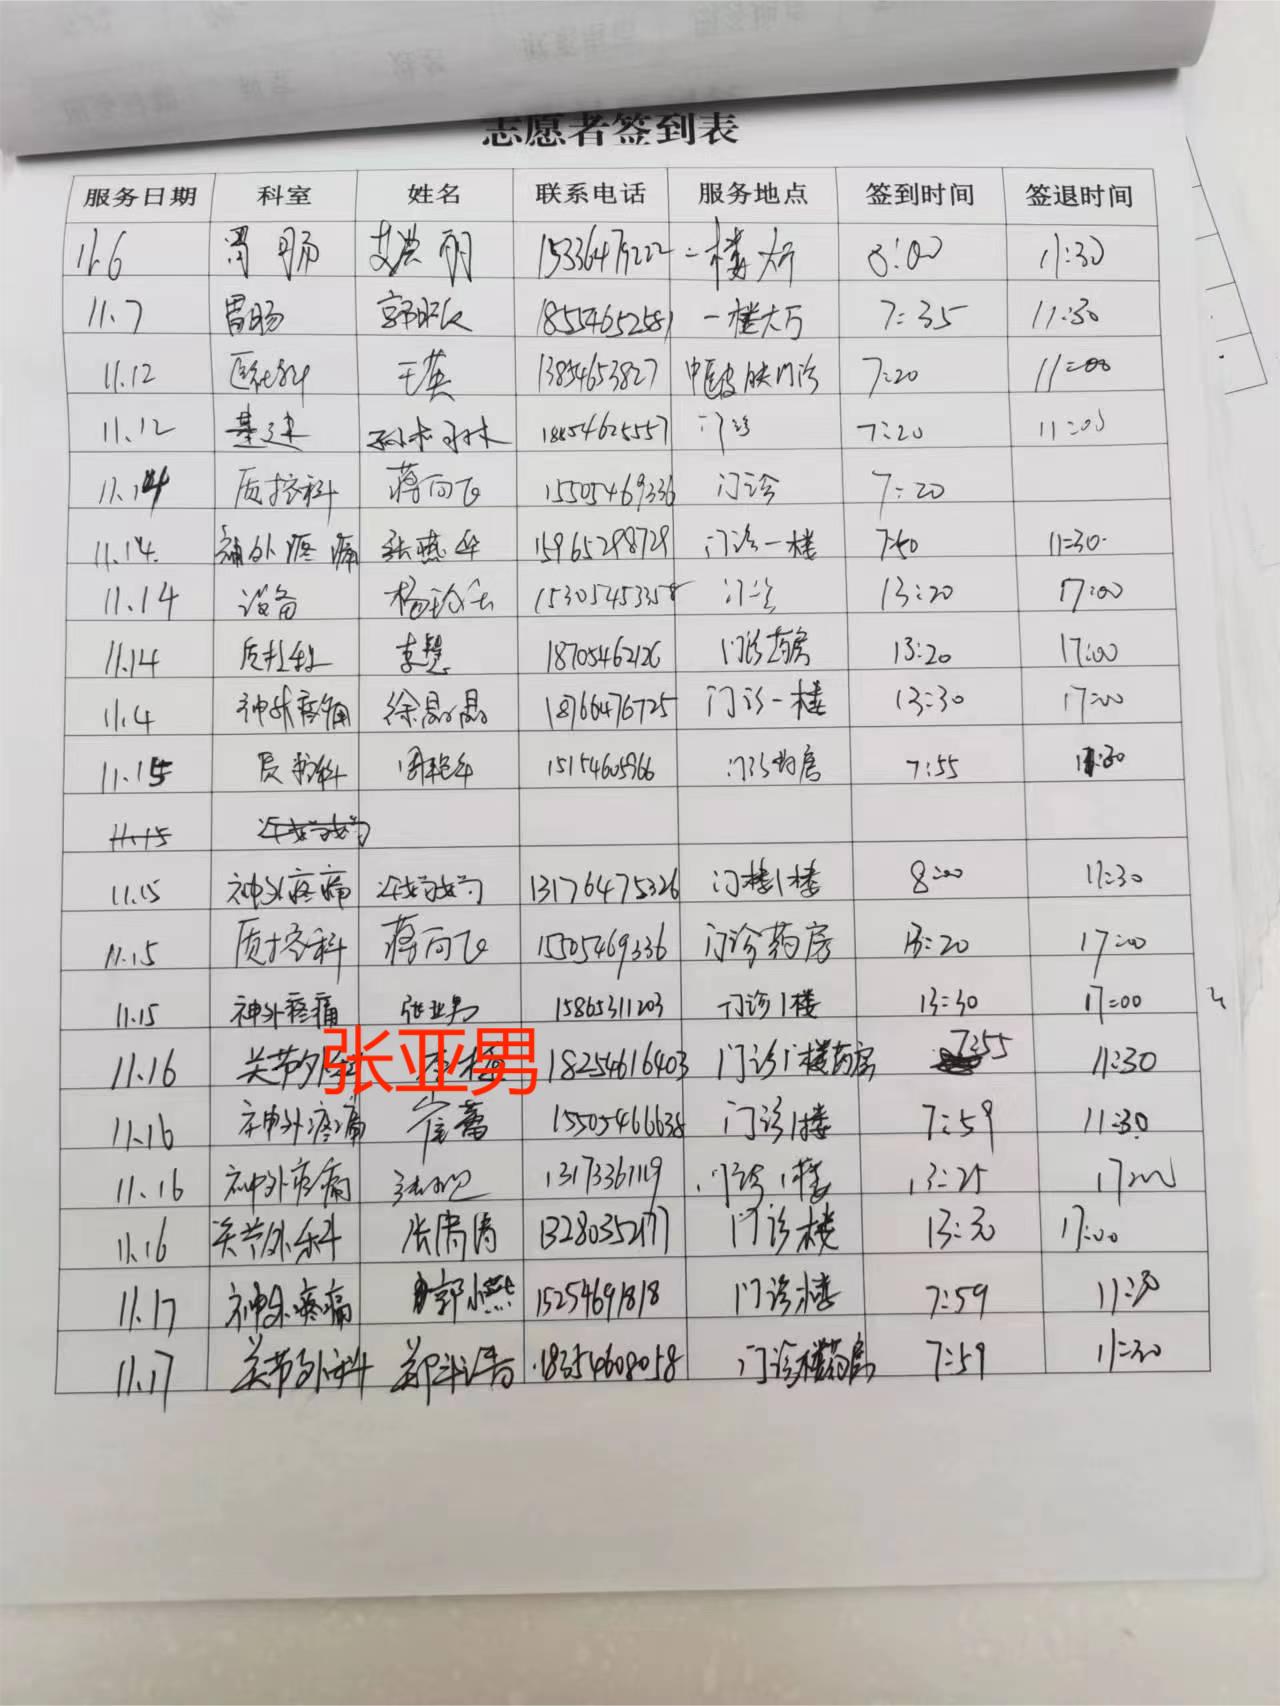 志愿者签到表
服务日期 科室 姓名 联系电话 服务地点 签到时间 签退时间
11.6 胃肠 艾洪丽 15336475222 一楼大厅 8:00 11:30
11.7 胃肠 18554652581 一楼大厅 7:35 11:30
11.12 王英 13854653827 中医皮肤门诊 7:20 11:00
11.12 基建 孙树林 18854625557 门诊 7:20 11:00
11.14 质控科 蒋向飞 15505469336 门诊 7:20
11.14. 神外疼痛 张燕华 15965298729 门诊一楼 7:50 11:30.
11.14 设备 15305453358 门诊 13:20 17:00
11.14 质控科 李慧 18705462126 门诊药房 13:20 17:00
11.4 神外疼痛 徐晶晶 18766476725 门诊一楼 13:30 17:00
11.15 质控科 周艳华 15154605966 门诊药房 7:55 11:30
11.15
11.15 神外疼痛 13176475326 门楼1楼 8:00 11:30
11.15 质控科 蒋向飞 15505469336 门诊药房 13:20 17:00
11.15 神外疼痛 张亚男 15865311203 门诊1楼 13:30 17:00
张亚男
11.16 关节外科 18254616403 门诊1楼药房 7:55 11:30
11.16 神外疼痛 崔蕾 15505466638 门诊1楼 7:59 11:30
11.16 神外疼痛 13173361119 门诊1楼 13:25 17:00
11.16 关节外科 张潇涛 13280352177 门诊楼 13:30 17:00
11.17 神外疼痛 郭小燕 15254691818 门诊楼 7:59 11:30
11.17 关节外科 18354608058 门诊楼药房 7:59 11:30